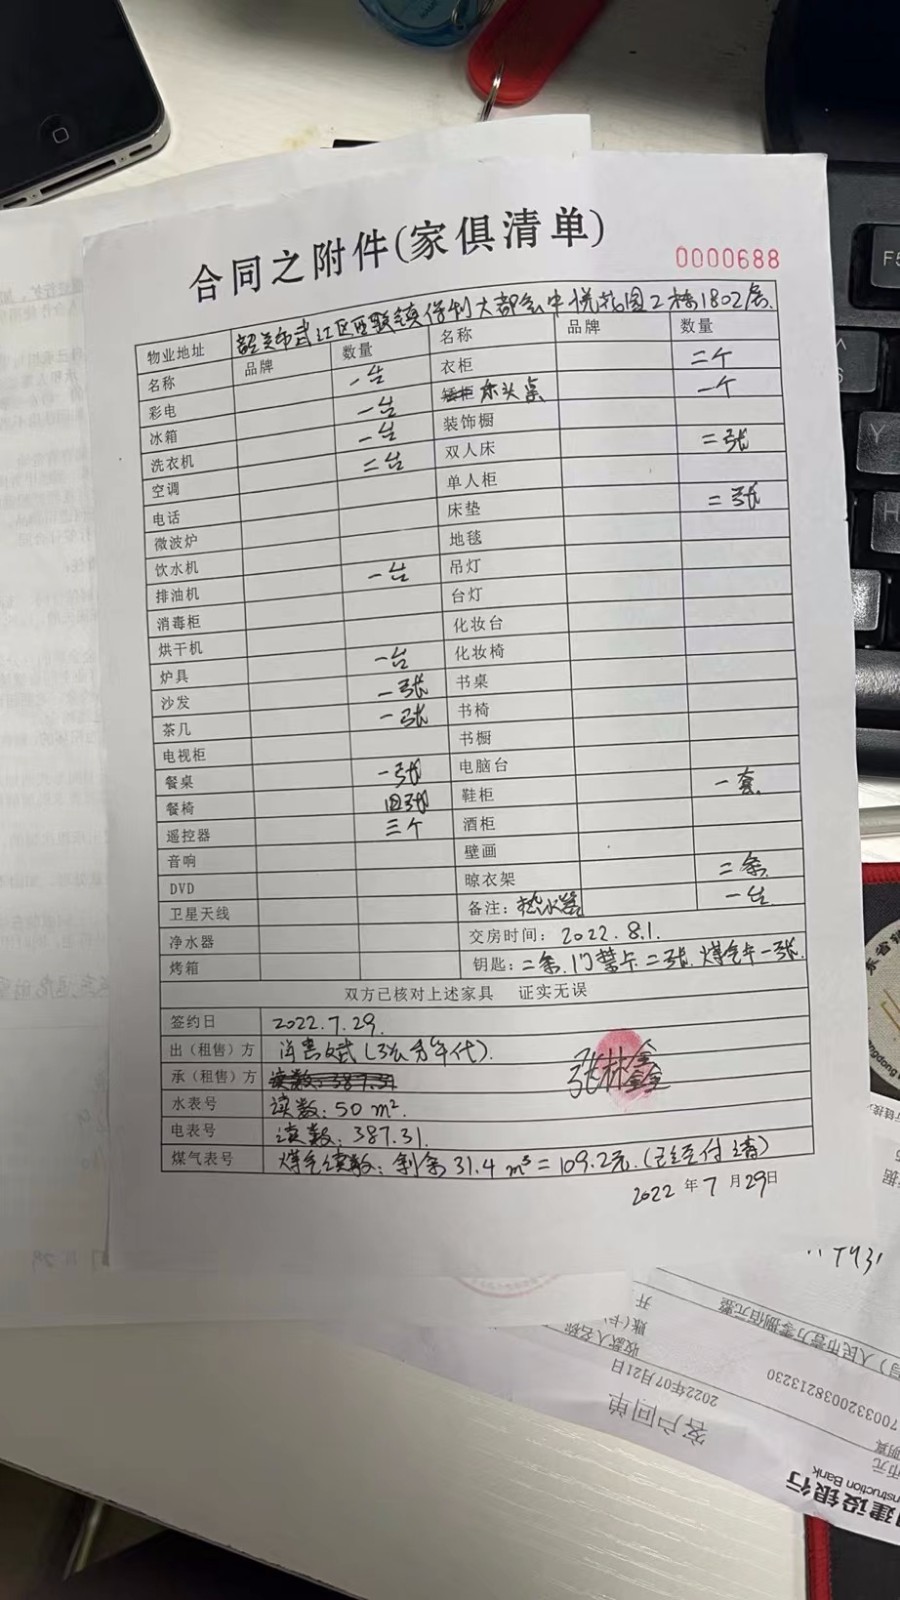 合同之附件(家俱清单)
0000688
物业地址 韶关市武江区西联镇保利大都会中悦花园2栋1802房.
名称 品牌 数量 名称 品牌 数量
彩电 一台 衣柜 二个
冰箱 一台 木头桌 一个
洗衣机 一台 装饰橱
空调 二台 双人床 二张
电话 单人柜
微波炉 床垫 二张
饮水机 地毯
排油机 一台 吊灯
消毒柜 台灯
烘干机 化妆台
炉具 一台 化妆椅
沙发 一张 书桌
茶几 一张 书椅
电视柜 书橱
餐桌 一张 电脑台
餐椅 四张 鞋柜 一套.
遥控器 三个 酒柜
音响 壁画
DVD 晾衣架 二条
卫星天线 备注: 热水器 一台
净水器 交房时间: 2022.8.1.
烤箱 钥匙: 二条.门禁卡二张.煤气卡一张.
双方已核对上述家具 证实无误
签约日 2022.7.29.
出(租售)方
承(租售)方 读数:387.31 张林鑫
水表号 读数: 50 m².
电表号 读数: 387.31.
煤气表号 煤气读数: 剩余31.4 m³=109.2元.(已经付清)
2022年7月29日
客户回单
2022年07月21日
收款人名称
人民币壹万零捌佰元整
70033200038213230
建设银行
nstruction Bank